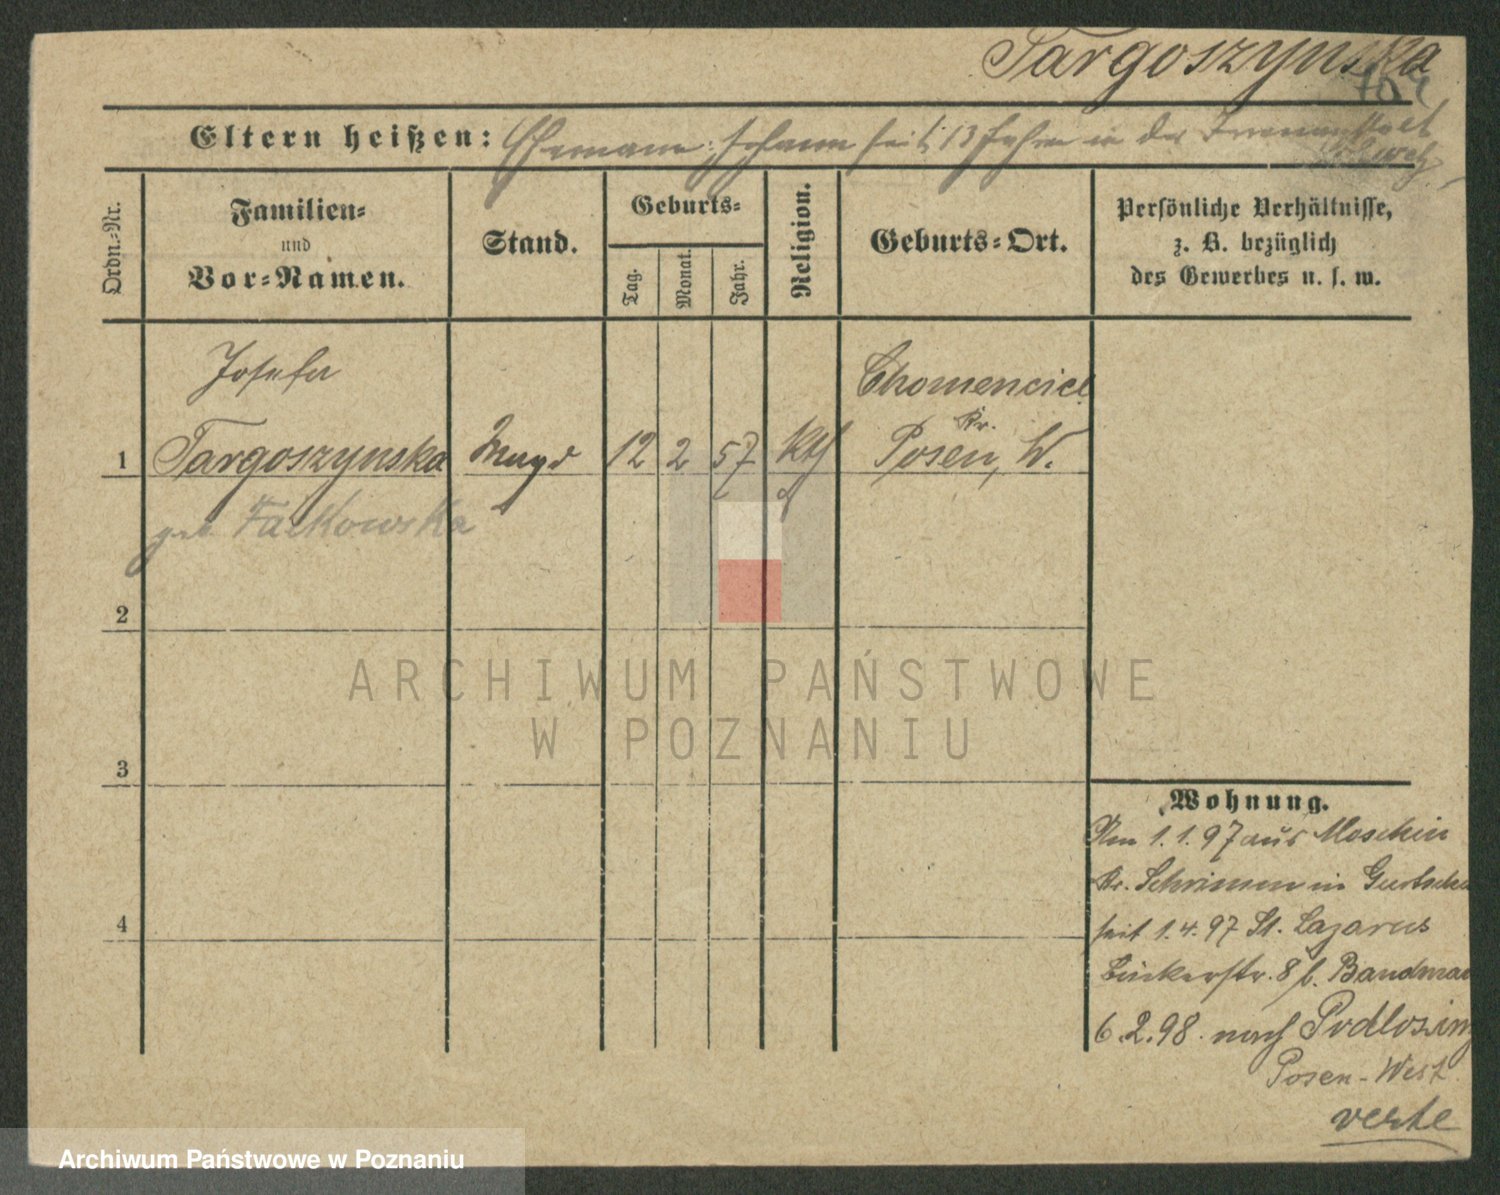 Targoszynska
Eltern heißen: Ehemann: Johann seit 13 Jahren in der Irrenanstalt
Ordn.-Nr.
Familien-
und
Vor-Namen.
Stand.
Geburts-
Tag.
Monat.
Jahr.
Religion.
Geburts-Ort.
Persönliche Verhältnisse,
z. B. bezüglich
des Gewerbes u. s. w.
Josefa
Chomencice
Kr.
1 Targoszynska Magd 12 2 57 kth Posen, W.
geb. Falkowska
2
3
4
Wohnung.
Am 1.1.97 aus Moschin
Kr. Schrimm in
seit 1.4.97 St. Lazarus
8 b. Bandman
6.2.98. nach
Posen-West
verte
ARCHIWUM PAŃSTWOWE
W POZNANIU
Archiwum Państwowe w Poznaniu